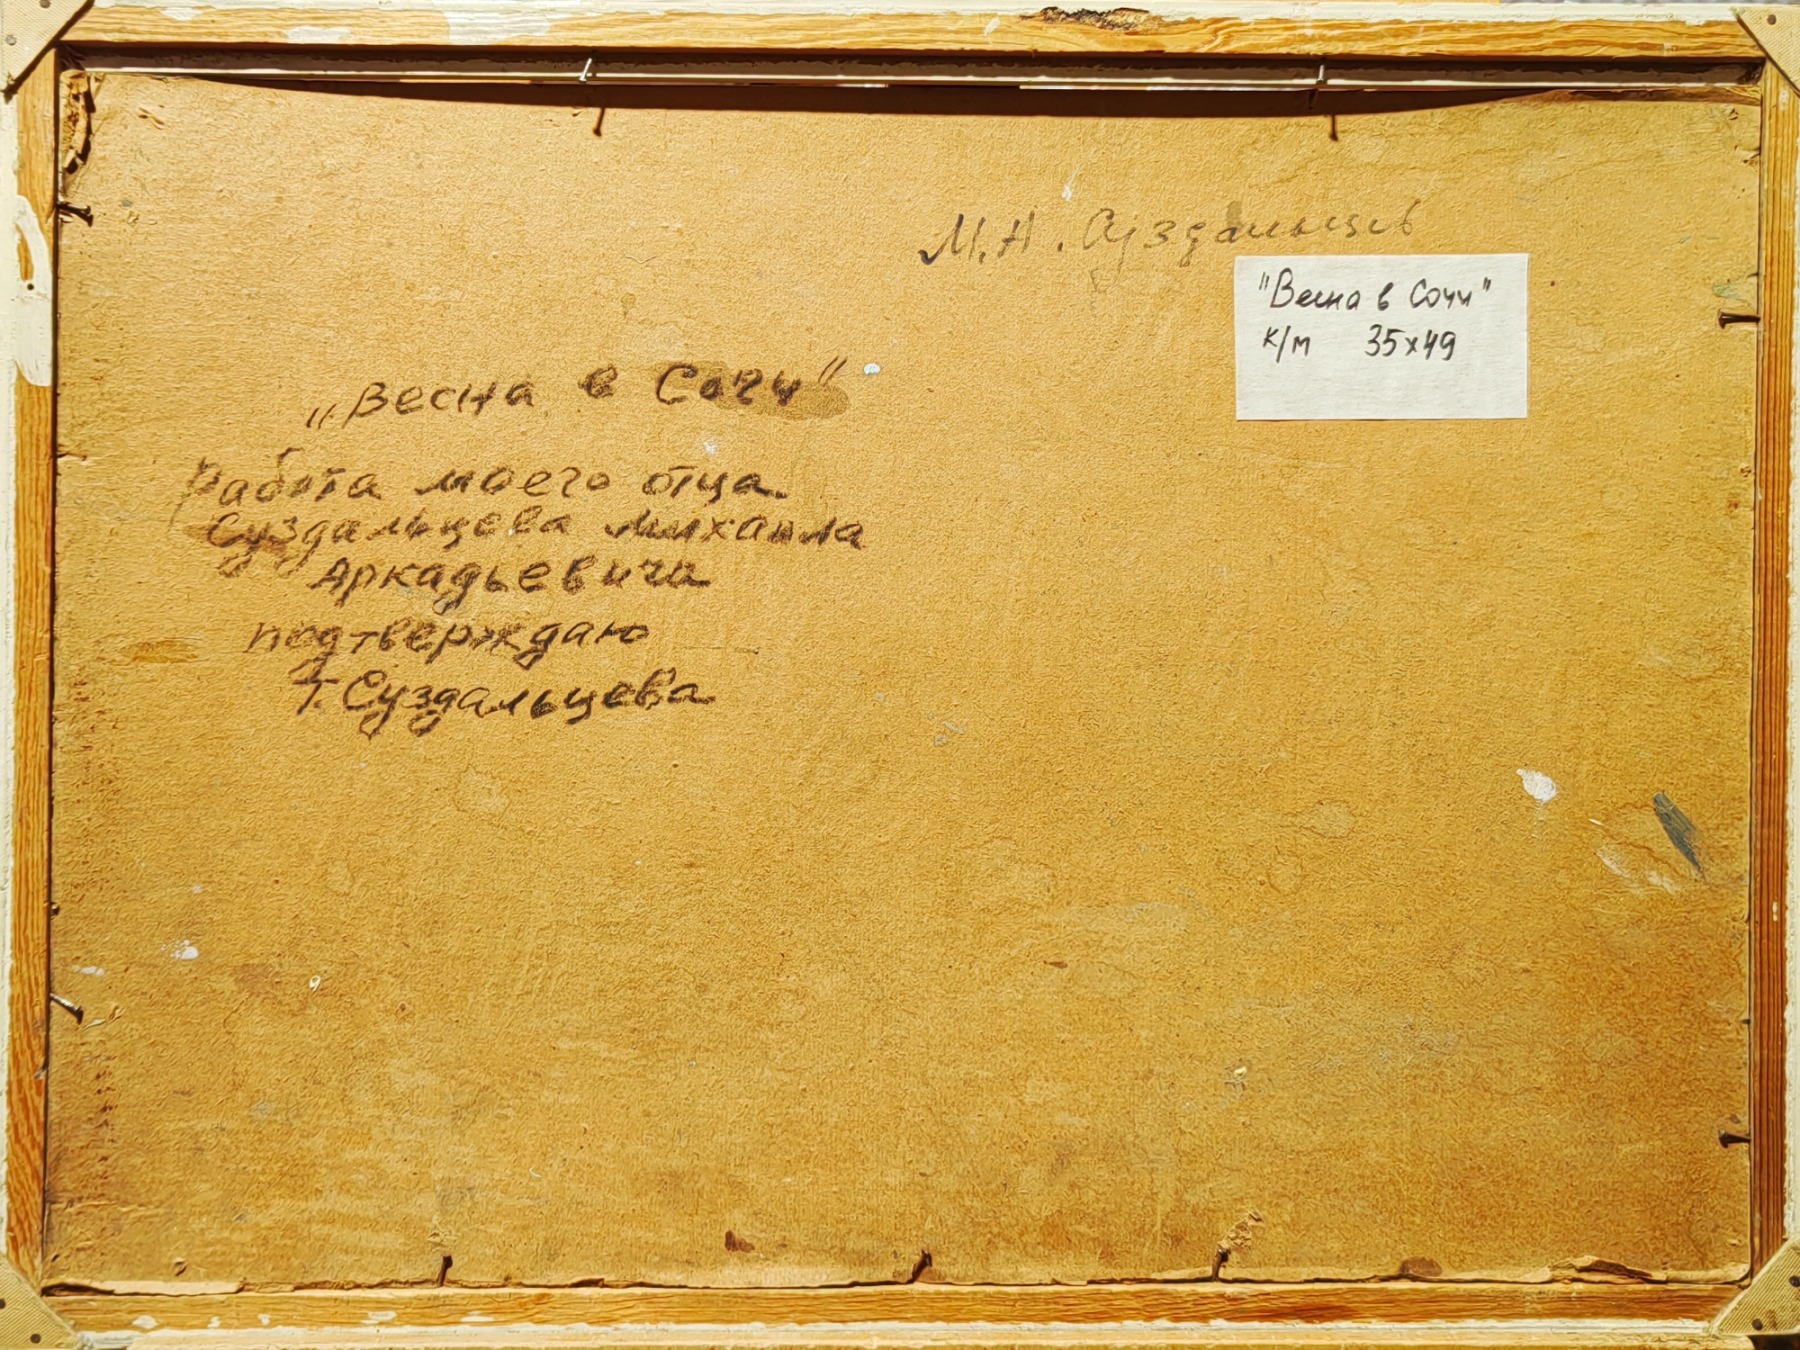 М.А. Суздальцев
"Весна в Сочи"
к/м 35х49
„Весна в Сочи"
Работа моего отца
Суздальцева Михаила
Аркадьевича
подтверждаю
Т. Суздальцева